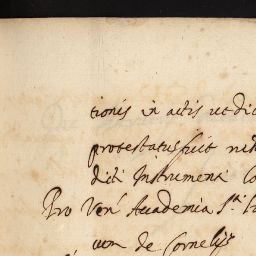 tionis in actis ut di
protestatus fuit
dicti Instrument
Pro Ven Academia S.
cum de Cornelijs